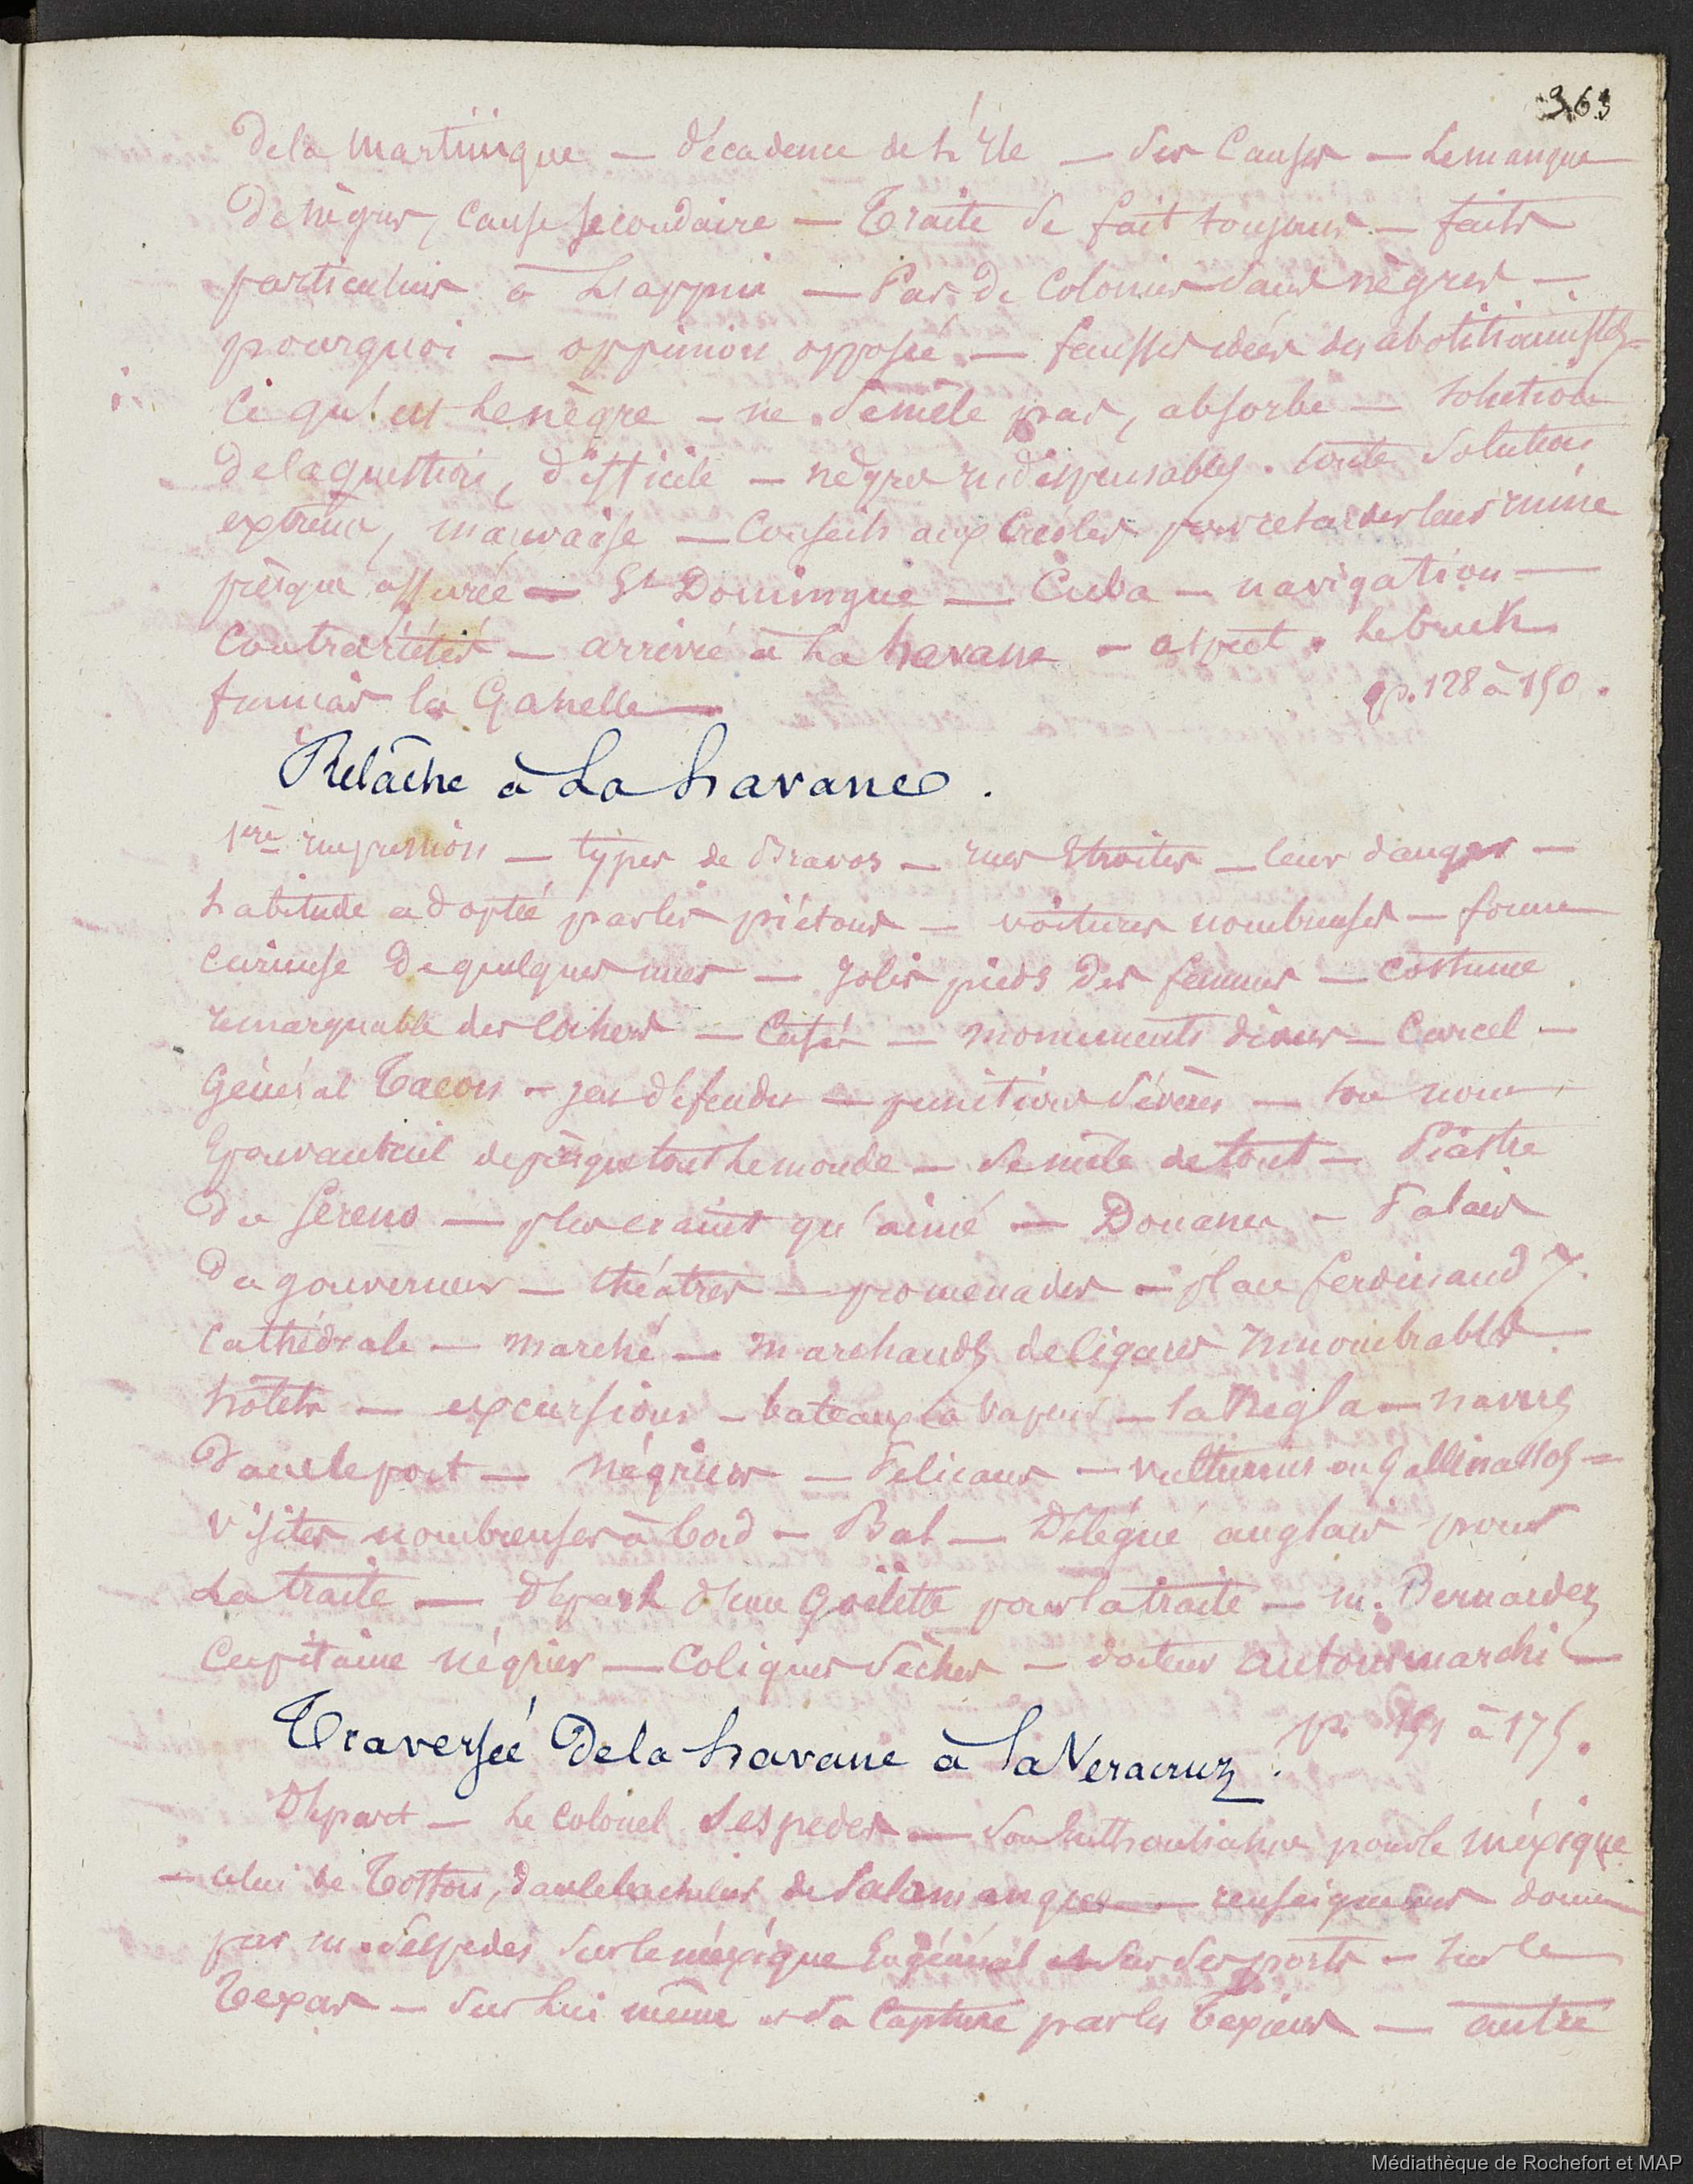 363
De la Martinique — décadence de L'Ile — Ses Causes — Le manque
De nègres, Cause Secondaire — Traite Se fait toujours — faits
particuliers à L'appui — Pas de Colonies Sans nègres —
pourquoi — oppinion opposée — fausses idées des abolitionnistes —
Ce qu'est Le nègre — ne Se mêle pas, absorbe — Solution
De la question, difficile — nègres indispensables. toute Solution
extrême, mauvaise — Conseils aux Créoles pour retarder leur ruine
prèsque assurée — St Domingue — Cuba — navigation —
Contrariétés — arrivée à La havane — aspect. Le brick
français la Gazelle — p. 128 à 150.
Relâche à La havane.
1ère impression — types de Bravos — rues Etroites — leur danger —
habitude adoptée par les piétons — voitures nombreuses — forme
Curieuse De quelques unes — Jolis pieds Des femmes — Costume
remarquable des Cochers — Cafés — monuments divers — Carcel —
Général Tacon — jeu défendu — punitions Sévères — Son nom
Epouvantail de prèsque tout Le monde — Se mêle de tout — Piastre
Du Sereno — plus craint qu'aimé — Douane — Palais
Du gouverneur — théâtres — promenades — place ferdinand 7.
Cathédrale — marché — marchands de Cigares Innombrables —
hôtels — excursions — bateaux à Vapeur — la Regla — navires
Dans le port — négriers — Pelicans — vulturius ou Gallinassos —
Visites nombreuses à bord — Bal — Délégué anglais pour
La traite — Départ d'une Goëlette pour la traite — m. Bernardez
Capitaine négrier — Coliques Sèches — docteur Autommarchi —
p. 151 à 175.
Traversée De la havane à la Veracruz.
Départ — Le Colonel Sespedes — Son Enthousiasme pour le méxique
— celui de Tostons, dans le bachelier de Salamanque — renseignements donnés
par m. Sespedes Sur le méxique En général et Sur Ses ports — Sur le
Texas — Sur Lui même et Sa Capture par les Texiens — autre
Médiathèque de Rochefort et MAP